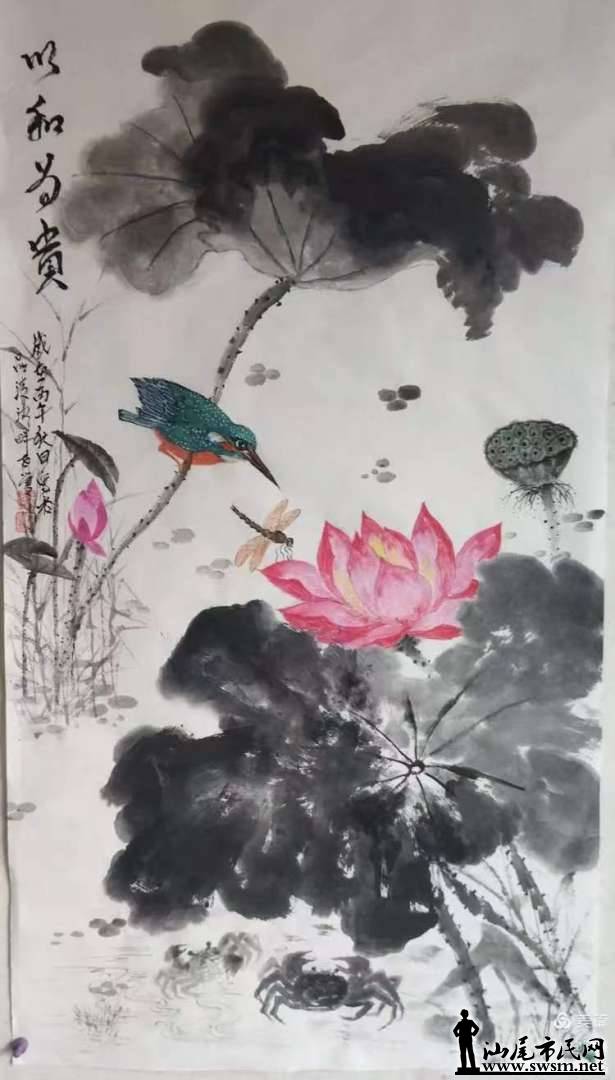 以和为貴
歲在丙午秋日
品清湖畔
美篇
汕尾市民网
www.swsm.net